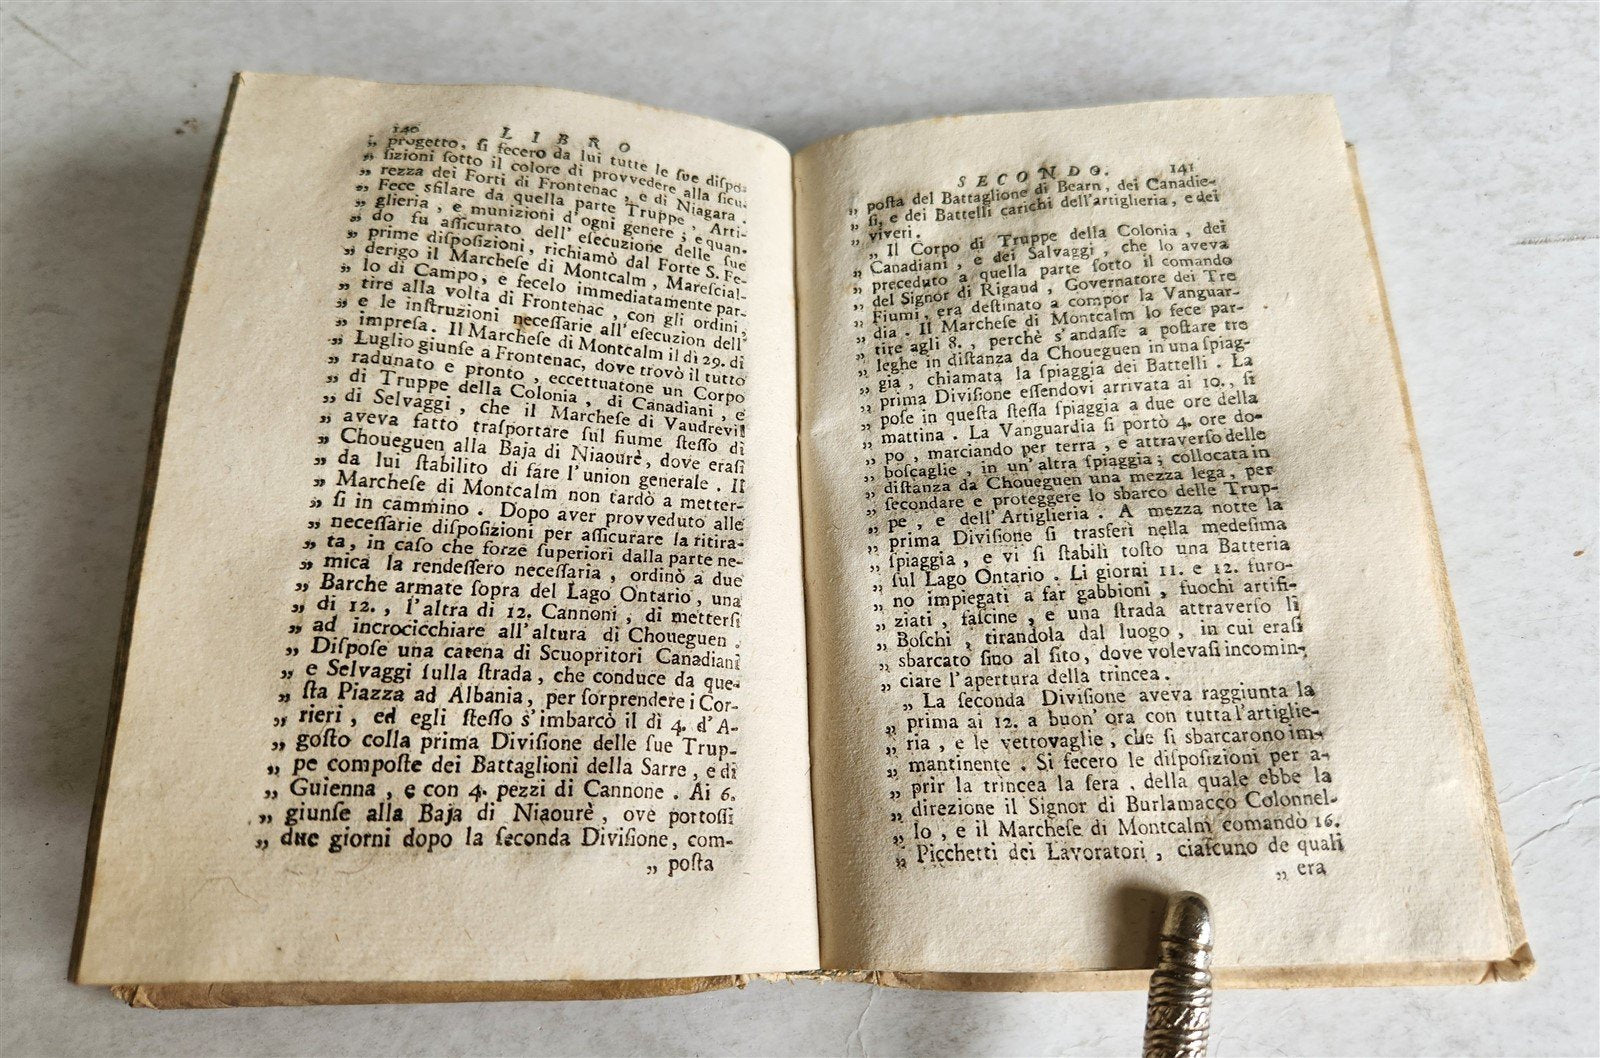 140 LIBRO
„ progetto, si fecero da lui tutte le sue dispo-
„ sizioni sotto il colore di provvedere alla sicu-
„ rezza dei Forti di Frontenac, e di Niagara.
„ Fece sfilare da quella parte Truppe, Arti-
„ glieria, e munizioni d'ogni genere; e quan-
„ do fu assicurato dell'esecuzione delle sue
„ prime disposizioni, richiamò dal Forte S. Fe-
„ derigo il Marchese di Montcalm, Marescial-
„ lo di Campo, e fecelo immediatamente par-
„ tire alla volta di Frontenac, con gli ordini,
„ e le instruzioni necessarie all'esecuzion dell'
„ impresa. Il Marchese di Montcalm il dì 29. di
„ Luglio giunse a Frontenac, dove trovò il tutto
„ radunato e pronto, eccettuatone un Corpo
„ di Truppe della Colonia, di Canadiani, e
„ di Selvaggi, che il Marchese di Vaudrevil
„ aveva fatto trasportare sul fiume stesso di
„ Choueguen alla Baja di Niaourè, dove erasi
„ da lui stabilito di fare l'union generale. Il
„ Marchese di Montcalm non tardò a metter-
„ si in cammino. Dopo aver provveduto alle
„ necessarie disposizioni per assicurare la ritira-
„ ta, in caso che forze superiori dalla parte ne-
„ mica la rendessero necessaria, ordinò a due
„ Barche armate sopra del Lago Ontario, una
„ di 12., l'altra di 12. Cannoni, di mettersi
„ ad incrocicchiare all'altura di Choueguen.
„ Dispose una catena di Scuopritori Canadiani
„ e Selvaggi sulla strada, che conduce da que-
„ sta Piazza ad Albania, per sorprendere i Cor-
„ rieri, ed egli stesso s'imbarcò il dì 4. d'A-
„ gosto colla prima Divisione delle sue Trup-
„ pe composte dei Battaglioni della Sarre, e di
„ Guienna, e con 4. pezzi di Cannone. Ai 6.
„ giunse alla Baja di Niaourè, ove portossi
„ due giorni dopo la seconda Divisione, com-
„ posta
SECONDO. 141
„ posta del Battaglione di Bearn, dei Canadie-
„ si, e dei Battelli carichi dell'artiglieria, e dei
„ viveri.
„ Il Corpo di Truppe della Colonia, dei
„ Canadiani, e dei Selvaggi, che lo aveva
„ preceduto a quella parte sotto il comando
„ del Signor di Rigaud, Governatore dei Tre
„ Fiumi, era destinato a compor la Vanguar-
„ dia. Il Marchese di Montcalm lo fece par-
„ tire agli 8., perchè s'andasse a postare tre
„ leghe in distanza da Choueguen in una spiag-
„ gia, chiamata la spiaggia dei Battelli. La
„ prima Divisione essendovi arrivata ai 10., si
„ pose in questa stessa spiaggia a due ore della
„ mattina. La Vanguardia si portò 4. ore do-
„ po, marciando per terra, e attraverso delle
„ boscaglie, in un'altra spiaggia; collocata in
„ distanza da Choueguen una mezza lega, per
„ secondare e proteggere lo sbarco delle Trup-
„ pe, e dell'Artiglieria. A mezza notte la
„ prima Divisione si trasferì nella medesima
„ spiaggia, e vi si stabilì tosto una Batteria
„ sul Lago Ontario. Li giorni 11. e 12. furo-
„ no impiegati a far gabbioni, fuochi artifi-
„ ziati, fascine, e una strada attraverso li
„ Boschi, tirandola dal luogo, in cui erasi
„ sbarcato sino al sito, dove volevasi incomin-
„ ciare l'apertura della trincea.
„ La seconda Divisione aveva raggiunta la
„ prima ai 12. a buon'ora con tutta l'artiglie-
„ ria, e le vettovaglie, che si sbarcarono im-
„ mantinente. Si fecero le disposizioni per a-
„ prir la trincea la sera, della quale ebbe la
„ direzione il Signor di Burlamacco Colonnel-
„ lo, e il Marchese di Montcalm comandò 16.
„ Picchetti dei Lavoratori, ciascuno de quali
„ era